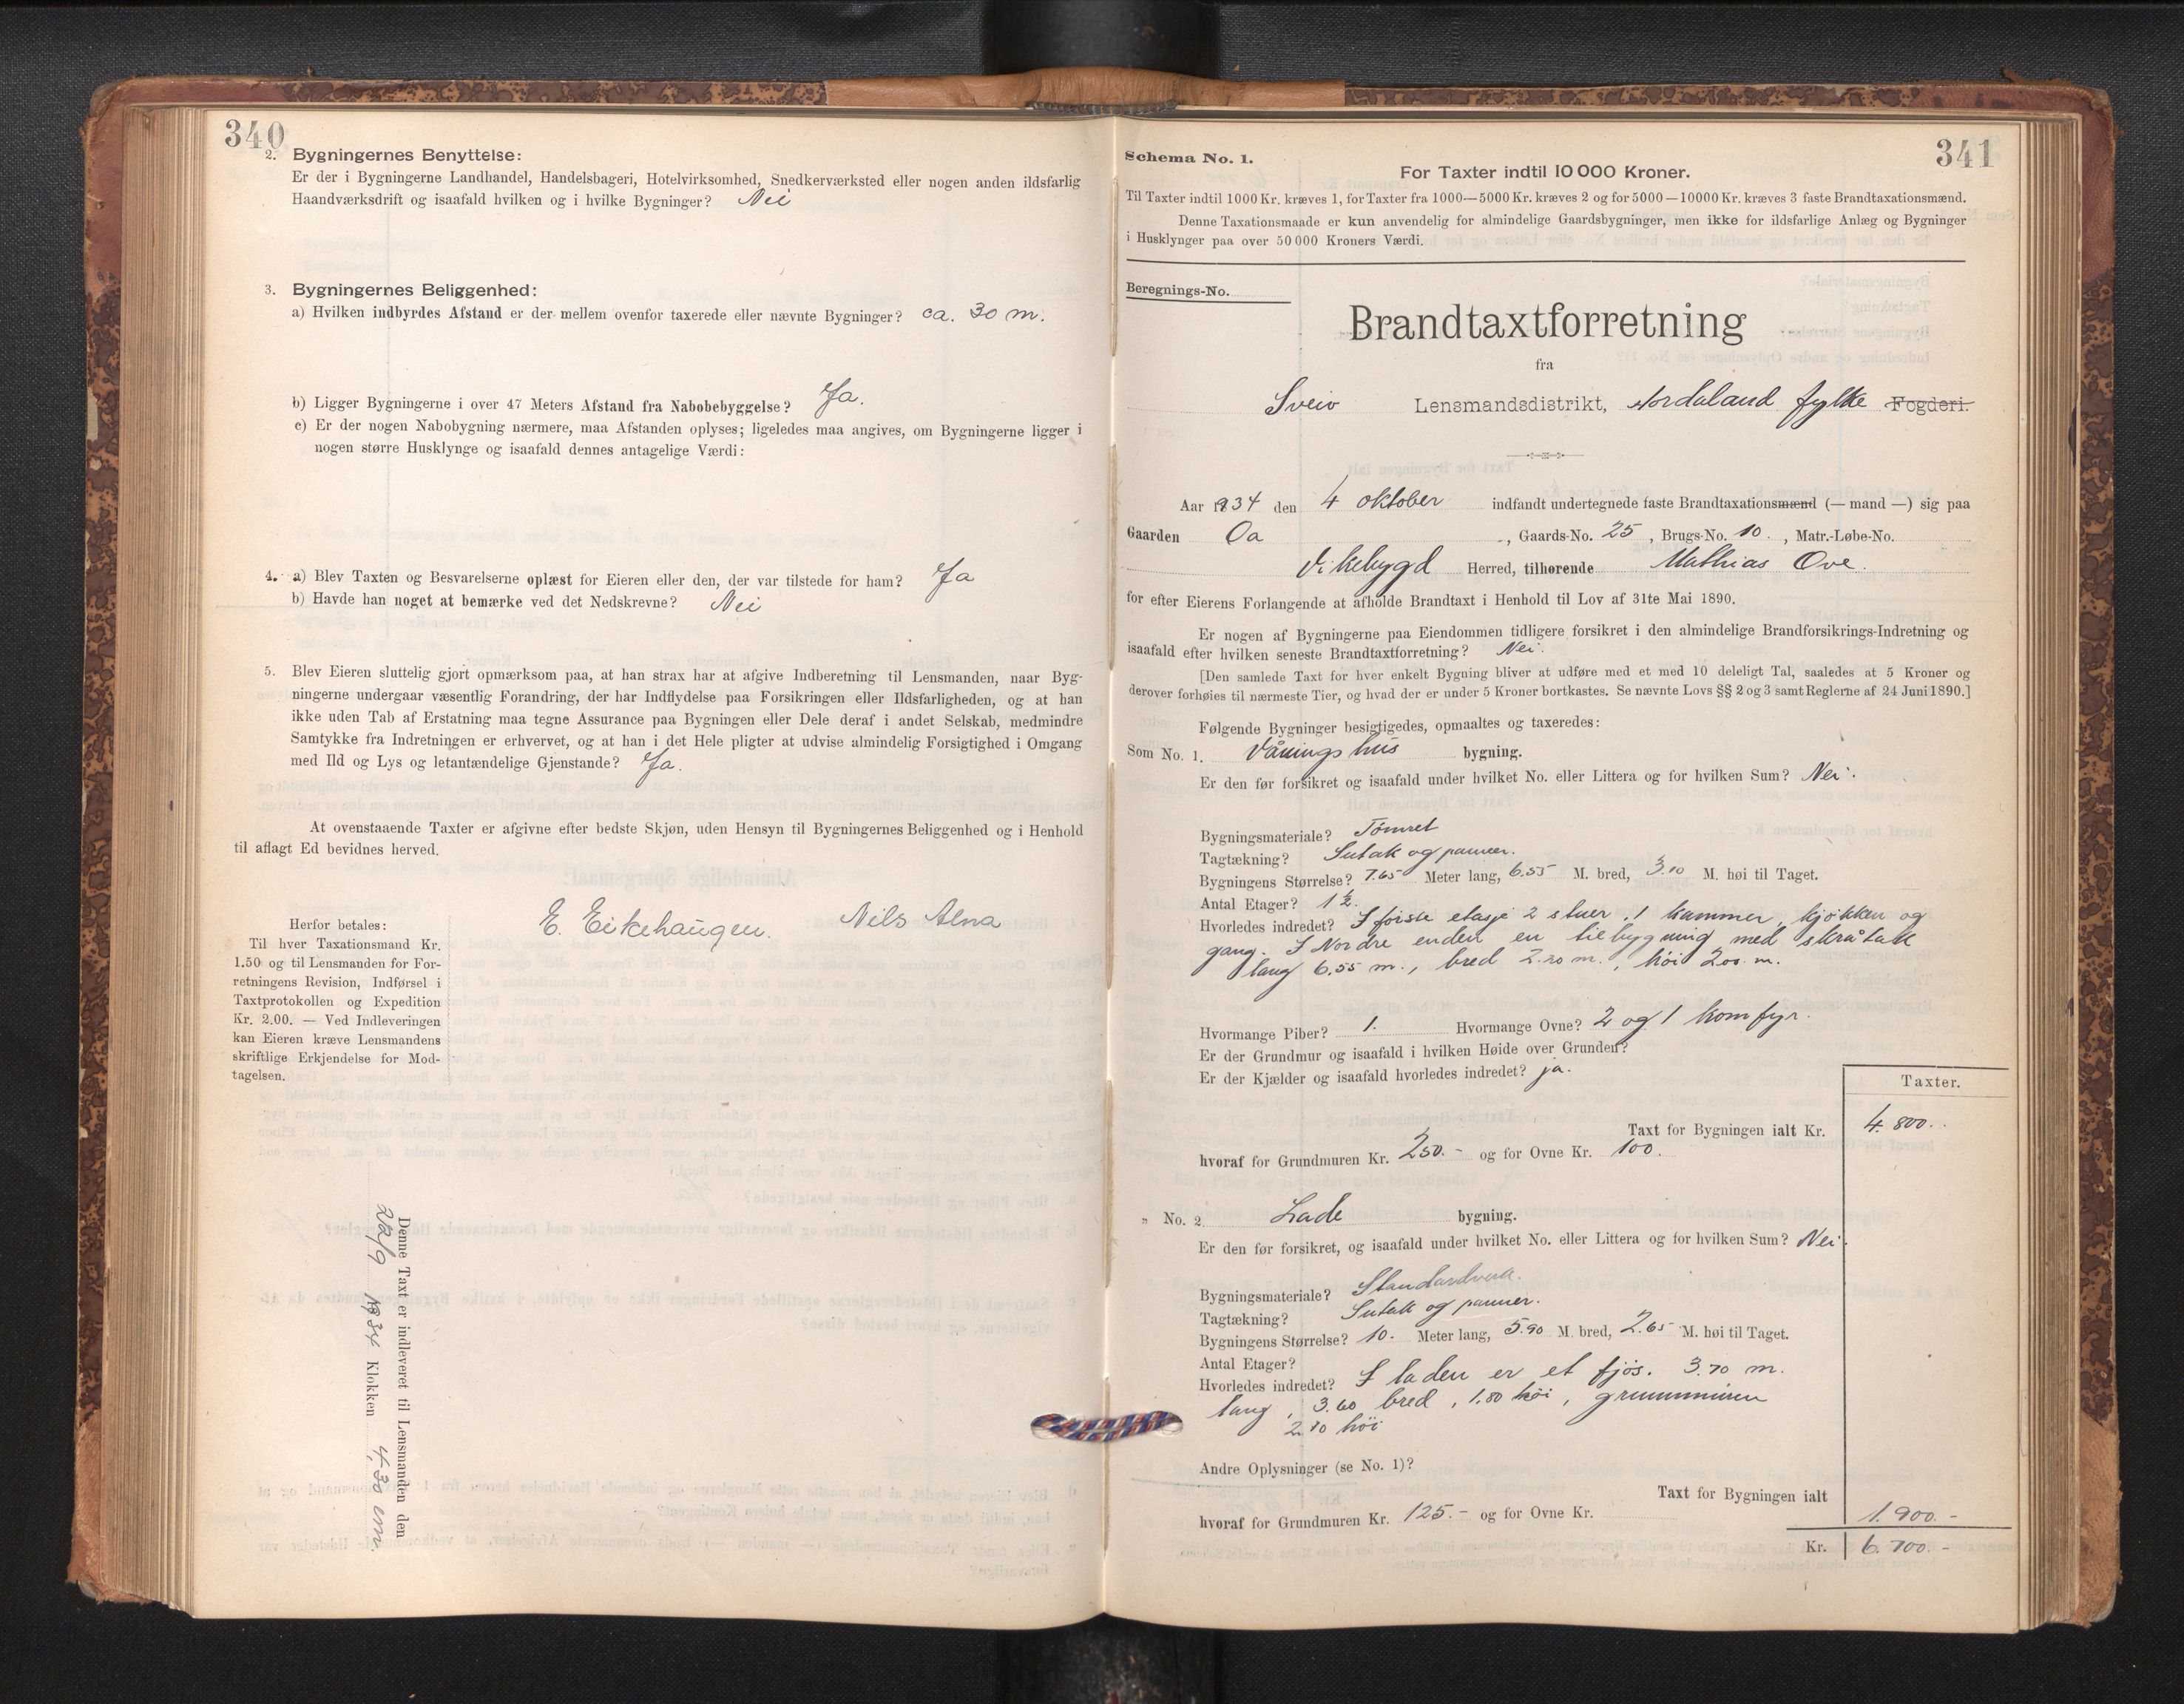 340
2. Bygningernes Benyttelse:
Er der i Bygningerne Landhandel, Handelsbageri, Hotelvirksomhed, Snedkerværksted eller nogen anden ildsfarlig
Haandværksdrift og isaafald hvilken og i hvilke Bygninger? Nei
3. Bygningernes Beliggenhed:
a) Hvilken indbyrdes Afstand er der mellem ovenfor taxerede eller nævnte Bygninger? ca. 30 m.
b) Ligger Bygningerne i over 47 Meters Afstand fra Nabobebyggelse? Ja.
c) Er der nogen Nabobygning nærmere, maa Afstanden oplyses; ligeledes maa angives, om Bygningerne ligger i
nogen større Husklynge og isaafald dennes antagelige Værdi:
4. a) Blev Taxten og Besvarelserne oplæst for Eieren eller den, der var tilstede for ham? Ja
b) Havde han noget at bemærke ved det Nedskrevne? Nei
5. Blev Eieren sluttelig gjort opmærksom paa, at han strax har at afgive Indberetning til Lensmanden, naar Byg-
ningerne undergaar væsentlig Forandring, der har Indflydelse paa Forsikringen eller Ildsfarligheden, og at han
ikke uden Tab af Erstatning maa tegne Assurance paa Bygningen eller Dele deraf i andet Selskab, medmindre
Samtykke fra Indretningen er erhvervet, og at han i det Hele pligter at udvise almindelig Forsigtighed i Omgang
med Ild og Lys og letantændelige Gjenstande? Ja.
At ovenstaaende Taxter er afgivne efter bedste Skjøn, uden Hensyn til Bygningernes Beliggenhed og i Henhold
til aflagt Ed bevidnes herved.
E. Eikehaugen. Nils Alna
Herfor betales:
Til hver Taxationsmand Kr.
1.50 og til Lensmanden for For-
retningens Revision, Indførsel i
Taxtprotokollen og Expedition
Kr. 2.00. — Ved Indleveringen
kan Eieren kræve Lensmandens
skriftlige Erkjendelse for Mod-
tagelsen.
Denne Taxt er indleveret til Lensmanden den
22/9 1934 Klokken 4,30 em.
341
Schema No. 1.
For Taxter indtil 10 000 Kroner.
Til Taxter indtil 1000 Kr. kræves 1, for Taxter fra 1000—5000 Kr. kræves 2 og for 5000—10000 Kr. kræves 3 faste Brandtaxationsmænd.
Denne Taxationsmaade er kun anvendelig for almindelige Gaardsbygninger, men ikke for ildsfarlige Anlæg og Bygninger
i Husklynger paa over 50 000 Kroners Værdi.
Beregnings-No.
Brandtaxtforretning
fra
Sveio Lensmandsdistrikt, Hordaland fylke Fogderi.
Aar 1934 den 4 oktober indfandt undertegnede faste Brandtaxationsmænd (— mand —) sig paa
Gaarden Oa , Gaards-No. 25 , Brugs-No. 10. , Matr.-Løbe-No.
Vikebygd Herred, tilhørende Mathias Ove.
for efter Eierens Forlangende at afholde Brandtaxt i Henhold til Lov af 31te Mai 1890.
Er nogen af Bygningerne paa Eiendommen tidligere forsikret i den almindelige Brandforsikrings-Indretning og
isaafald efter hvilken seneste Brandtaxtforretning? Nei.
[Den samlede Taxt for hver enkelt Bygning bliver at udføre med et med 10 deleligt Tal, saaledes at 5 Kroner og
derover forhøies til nærmeste Tier, og hvad der er under 5 Kroner bortkastes. Se nævnte Lovs §§ 2 og 3 samt Reglerne af 24 Juni 1890.]
Følgende Bygninger besigtigedes, opmaaltes og taxeredes:
Som No. 1. Våningshus bygning.
Er den før forsikret og isaafald under hvilket No. eller Littera og for hvilken Sum? Nei.
Bygningsmateriale? Tømret
Tagtækning? Sutak og panner.
Bygningens Størrelse? 7.65 Meter lang, 6.55 M. bred, 3.10 M. høi til Taget.
Antal Etager? 1½.
Hvorledes indredet? I første etasje 2 stuer, 1 kammer, kjøkken og
gang. I Nordre enden en tilbygning med skråtak
lang 6.55 m., bred 2.20 m., høi 2.00. m.
Hvormange Piber? 1. Hvormange Ovne? 2 og 1 komfyr.
Er der Grundmur og isaafald i hvilken Høide over Grunden?
Er der Kjælder og isaafald hvorledes indredet? ja.
Taxter.
Taxt for Bygningen ialt Kr. 4.800.
hvoraf for Grundmuren Kr. 250.- og for Ovne Kr. 100.
„ No. 2 Lade bygning.
Er den før forsikret, og isaafald under hvilket No. eller Littera og for hvilken Sum? Nei.
Bygningsmateriale? Standardverk.
Tagtækning? Sutak og panner.
Bygningens Størrelse? 10. Meter lang, 5.90 M. bred, 2.65 M. høi til Taget.
Antal Etager?
Hvorledes indredet? I laden er et fjøs. 3.70 m.
lang, 3.60 bred, 1.80 høi, grunnmuren
2.10 høi
Andre Oplysninger (se No. 1)?
Taxt for Bygningen ialt 1.900.-
hvoraf for Grundmuren Kr. 125.- og for Ovne Kr.
Kr. 6.700.-